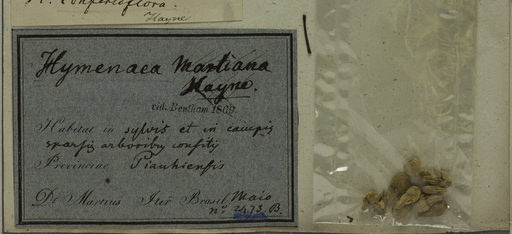 confertiflora.
Hayne
Hymenaea Martiana
Hayne.
vid. Bentham 1869.
Habitat in sylvis et in campis
sparsis arboribus consitis
Provinciae Piauhiensis
Dr Martius Iter Brasil. Maio
n. 2473. B.